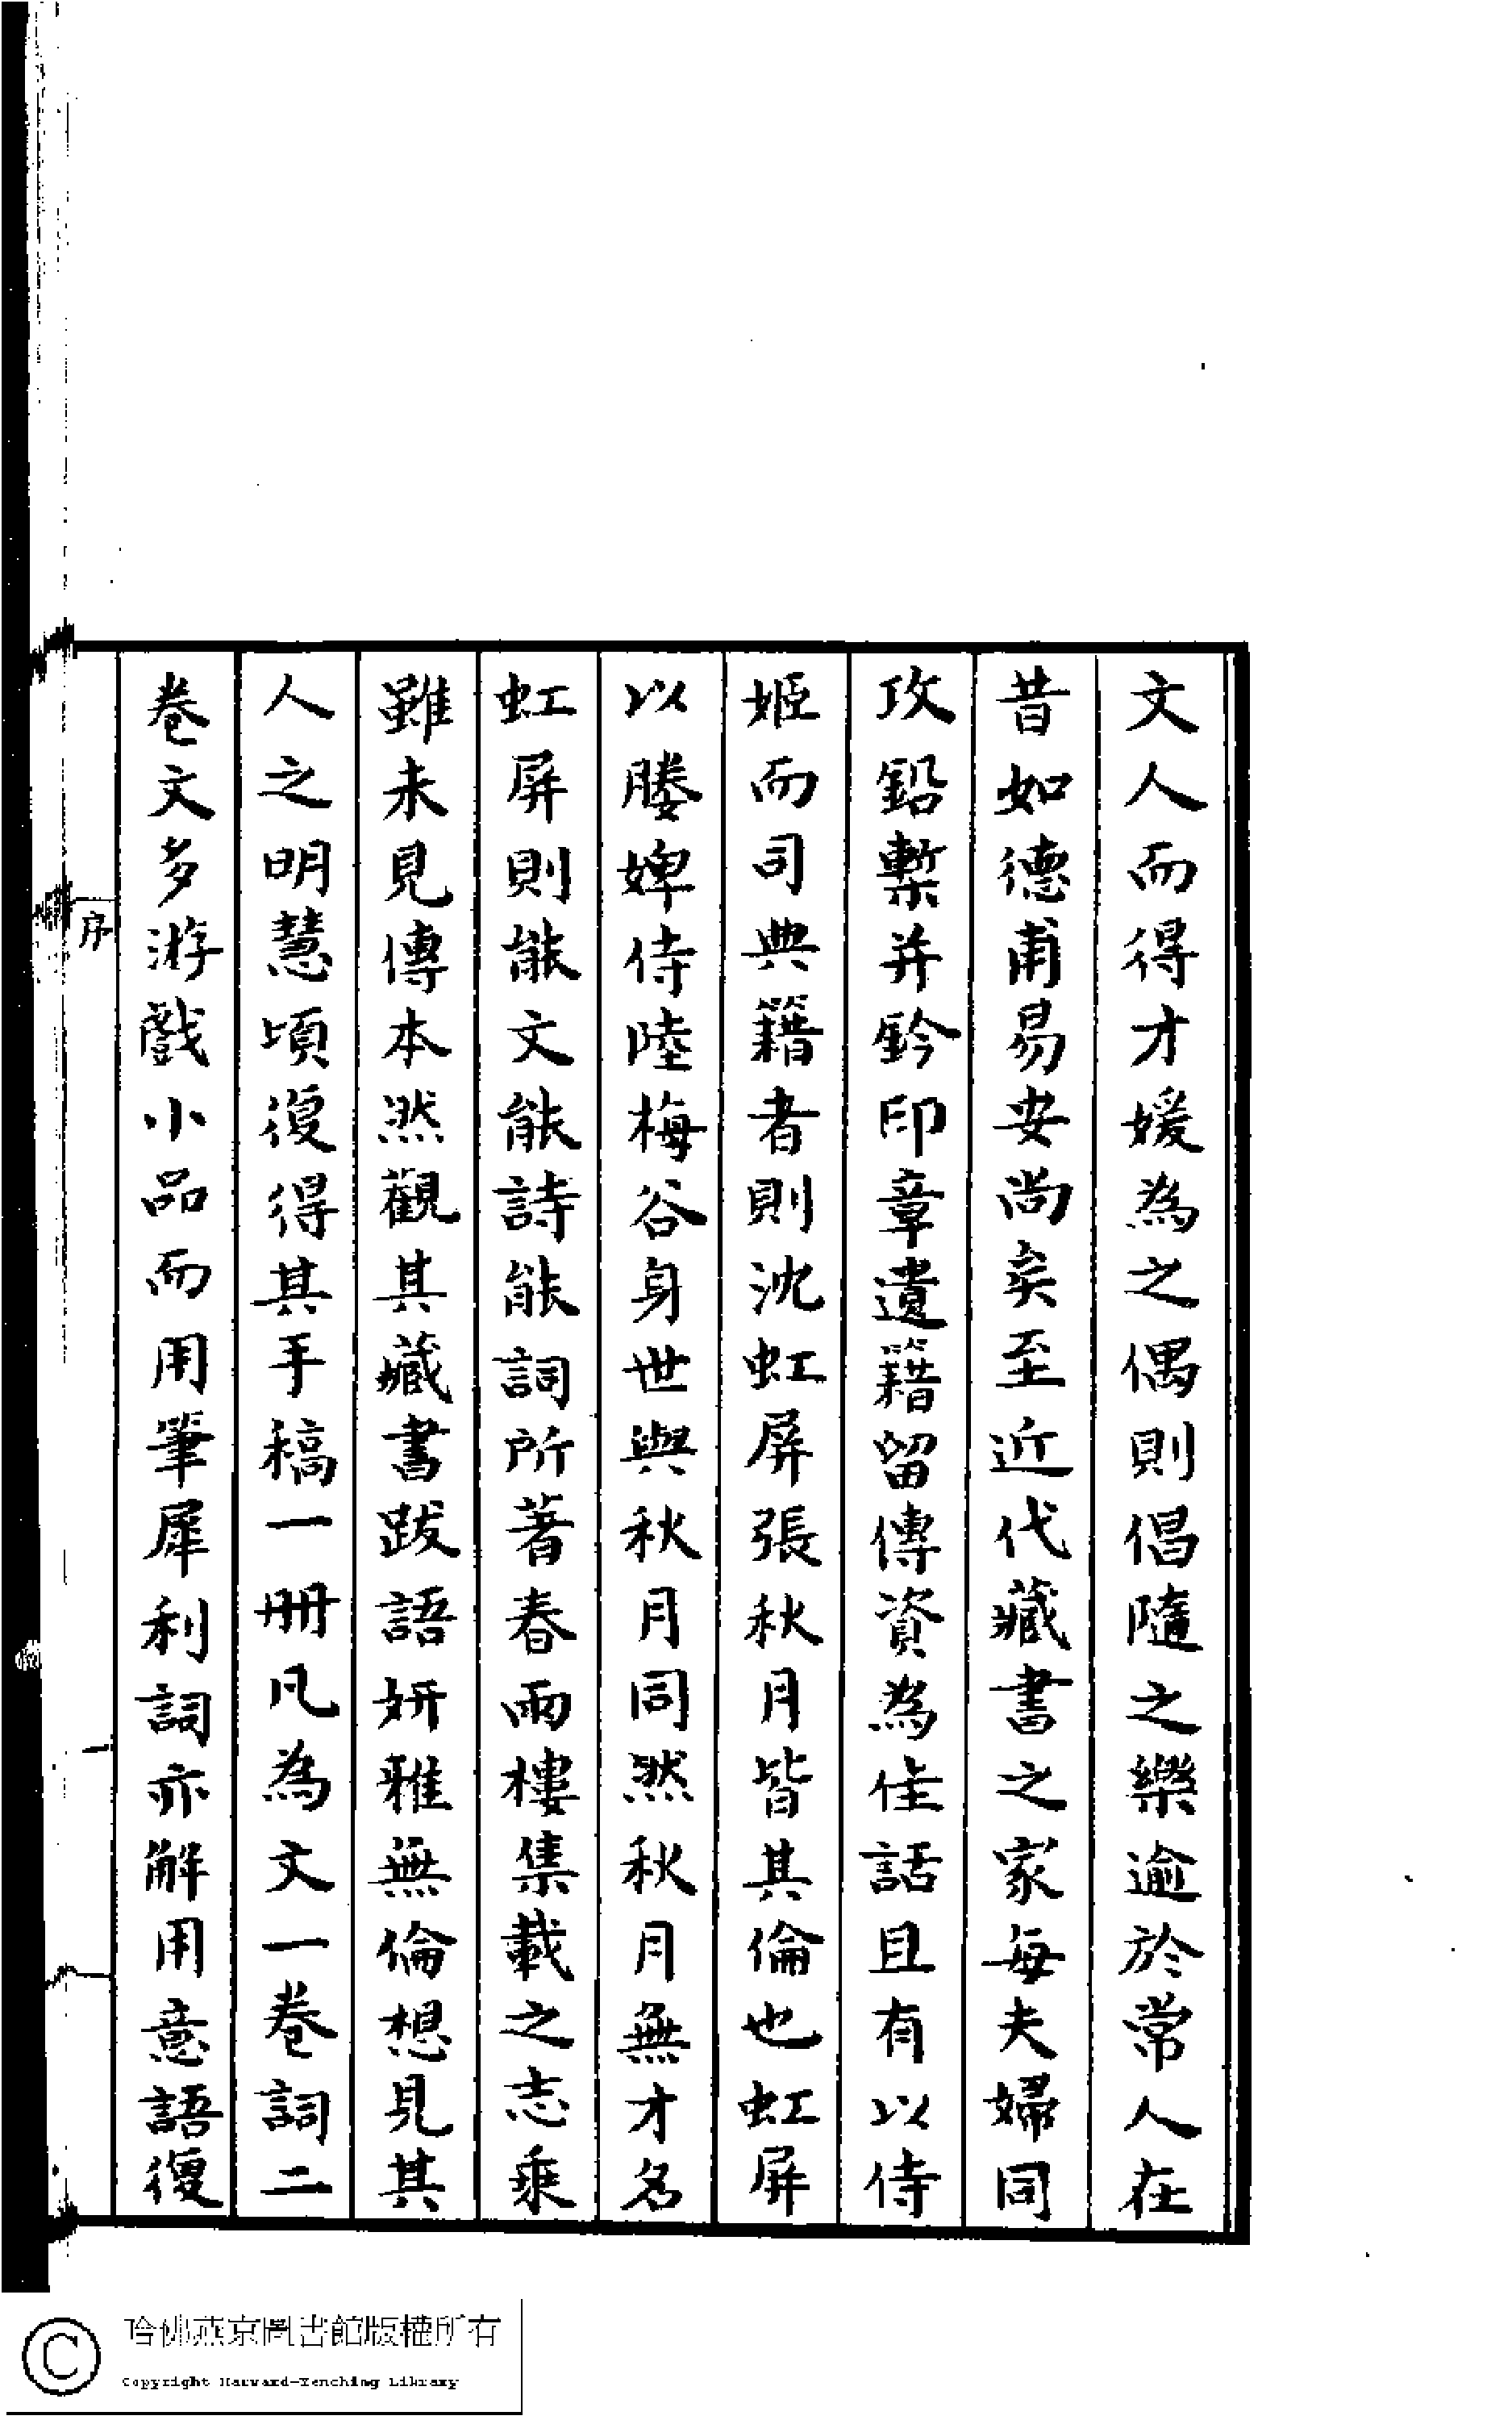 文人而得才媛為之偶則倡隨之樂逾於常人在
昔如德甫易安尚矣至近代藏書之家每夫婦同
攻鉛槧并鈐印章遺籍留傳資為佳話且有以侍
姬而司典籍者則沈虹屏張秋月皆其倫也虹屏
以媵婢侍陸梅谷身世與秋月同然秋月無才名
虹屏則能文能詩能詞所著春雨樓集載之志乘
雖未見傳本然觀其藏書跋語妍雅無倫想見其
人之明慧頃復得其手稿一冊凡為文一卷詞二
卷文多游戲小品而用筆犀利詞亦解用意語復
序
一
哈佛燕京圖書館版權所有
Copyright Harvard-Yenching Library